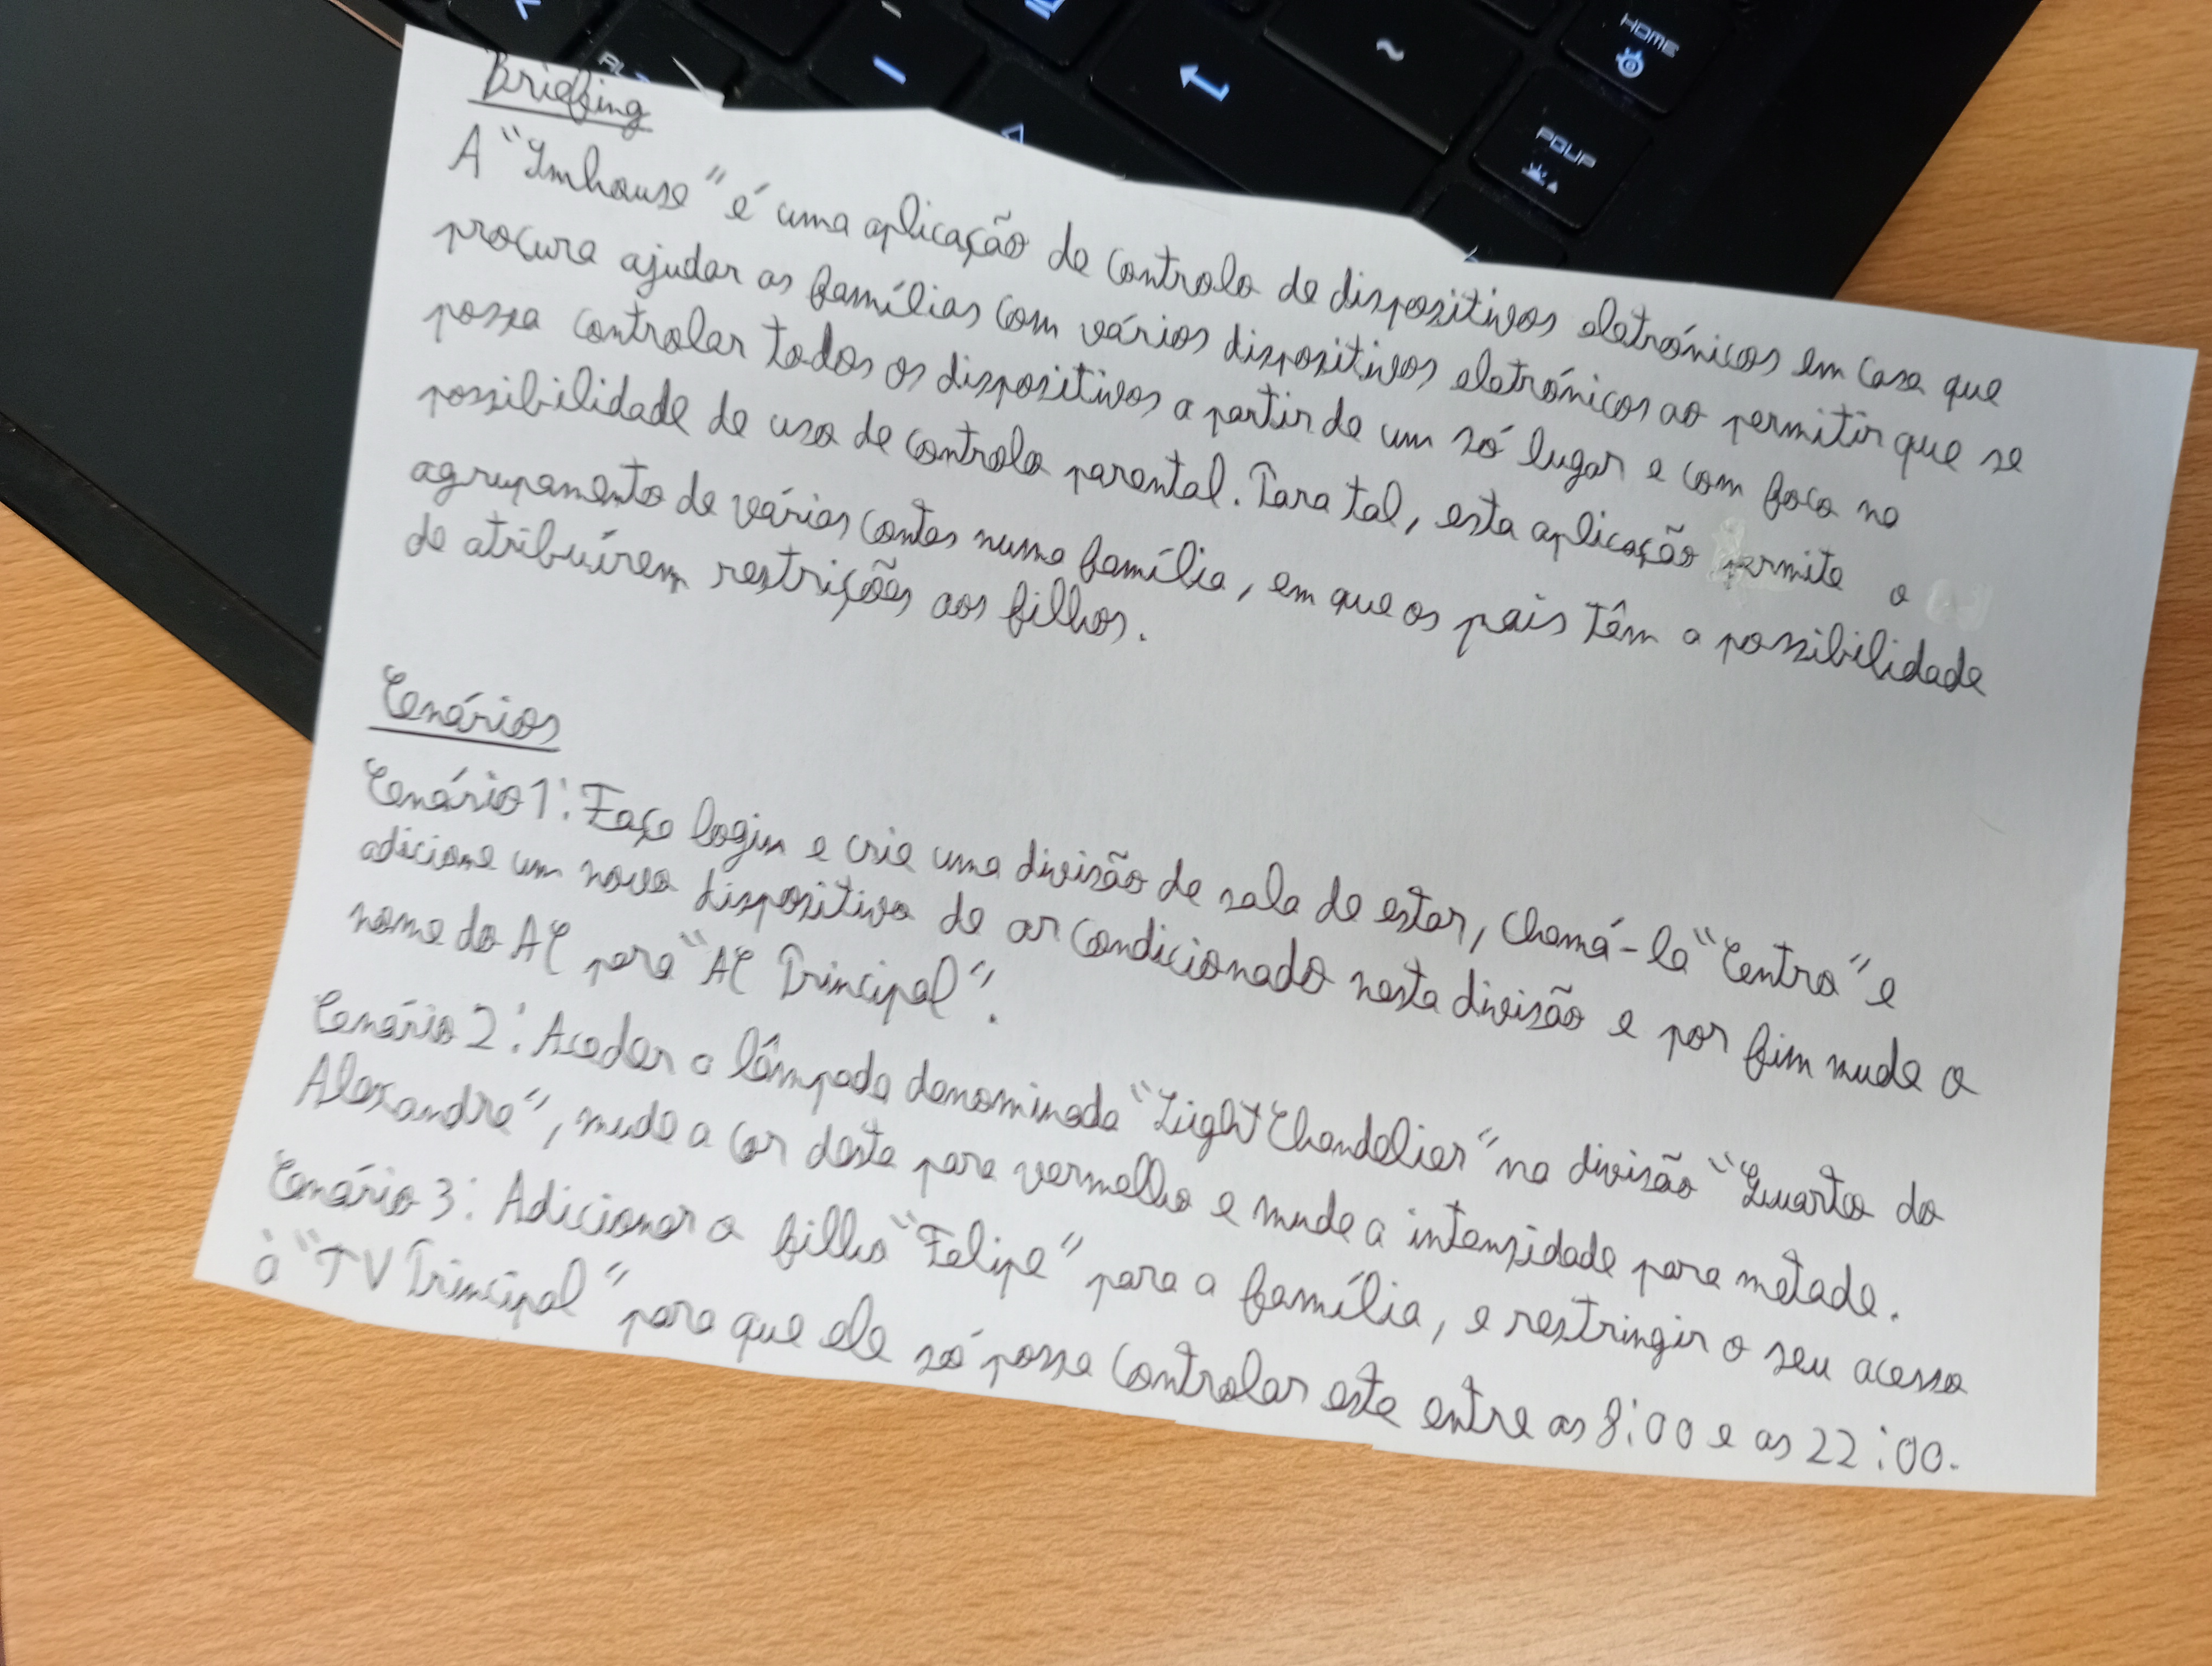 HOME
PGUP
Briefing
A "Imhouse" é uma aplicação de controlo de dispositivos eletrónicos em casa que
procura ajudar as famílias com vários dispositivos eletrónicos ao permitir que se
possa controlar todos os dispositivos a partir de um só lugar e com foco na
possibilidade de uso de controlo parental. Para tal, esta aplicação permite o
agrupamento de várias contas numa família, em que os pais têm a possibilidade
de atribuírem restrições aos filhos.
Cenários
Cenário 1: Faça login e crie uma divisão de sala de estar, chamá-la "Centro" e
adicione um novo dispositivo de ar condicionado nesta divisão e por fim mude o
nome do AC para "AC Principal".
Cenário 2: Aceder a lâmpada denominada "Light Chandelier" na divisão "Quarto do
Alexandre", mude a cor deste para vermelho e mude a intensidade para metade.
Cenário 3: Adicionar o filho "Felipe" para a família, e restringir o seu acesso
à "TV Principal" para que ele só possa controlar este entre as 8:00 e as 22:00.